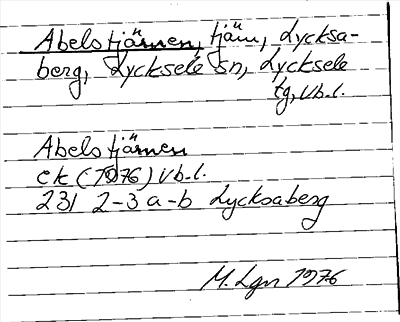 Abelstjärnen, tjärn, Lycksa-
berg, Lycksele sn, Lycksele
tg, Vb.l.
Abelstjärnen
ek (1976) Vb.l.
231 2-3 a-b Lycksaberg
M. Lgn 1976